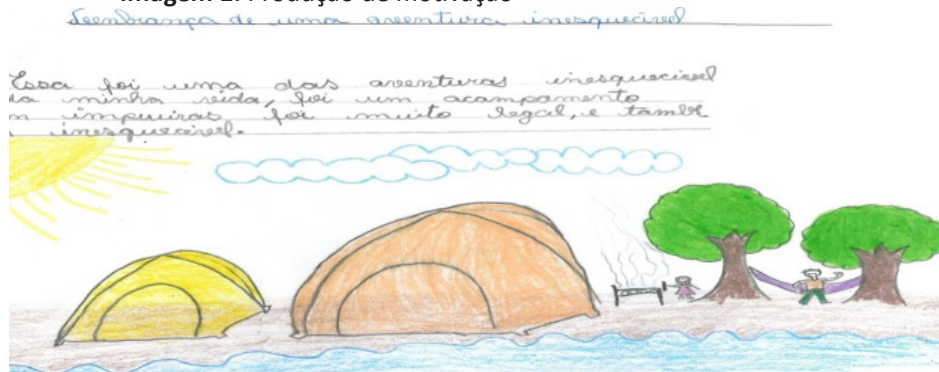 Imagem 1: Produção de motivação
Lembrança de uma aventura inesquecível
Essa foi uma das aventuras inesquecivel
da minha vida, foi um acampamento
foi muito legal, e també
inesquecivel.